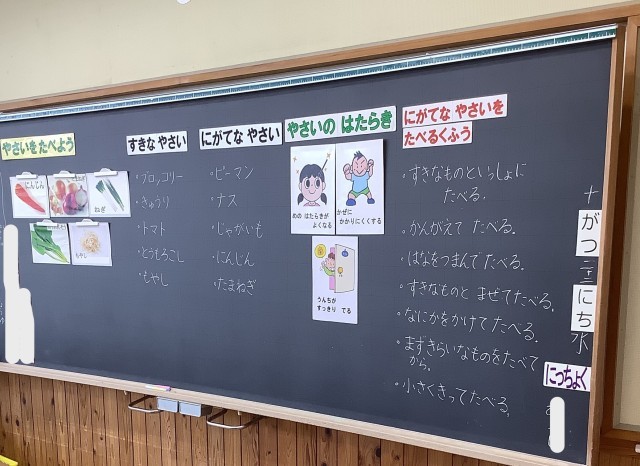 やさいをたべよう
にんじん
ねぎ
もやし
すきな やさい
・ブロッコリー
・きゅうり
・トマト
・とうもろこし
・もやし
にがてな やさい
・ピーマン
・ナス
・じゃがいも
・にんじん
・たまねぎ
やさいの はたらき
めの はたらきが
よくなる
かぜに
かかりにくくする
うんちが
すっきり でる
にがてな やさいを
たべるくふう
・すきなものといっしょに
たべる。
・かんがえて たべる。
・はなをつまんで たべる。
・すきなものと まぜてたべる。
・なにかをかけて たべる。
・まずきらいなものをたべて
から。
・小さくきってたべる。
十
がつ
二十二
にち
水
にっちょく